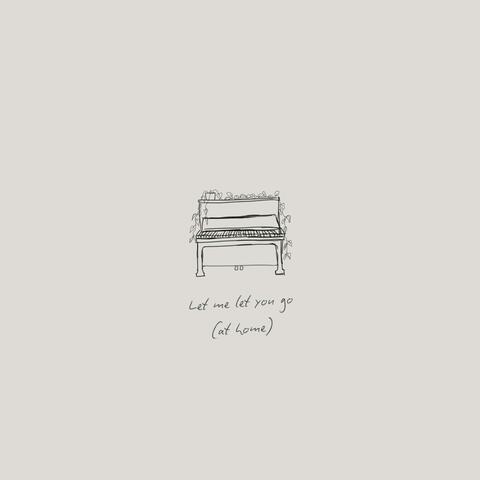 Let me let you go
(at home)